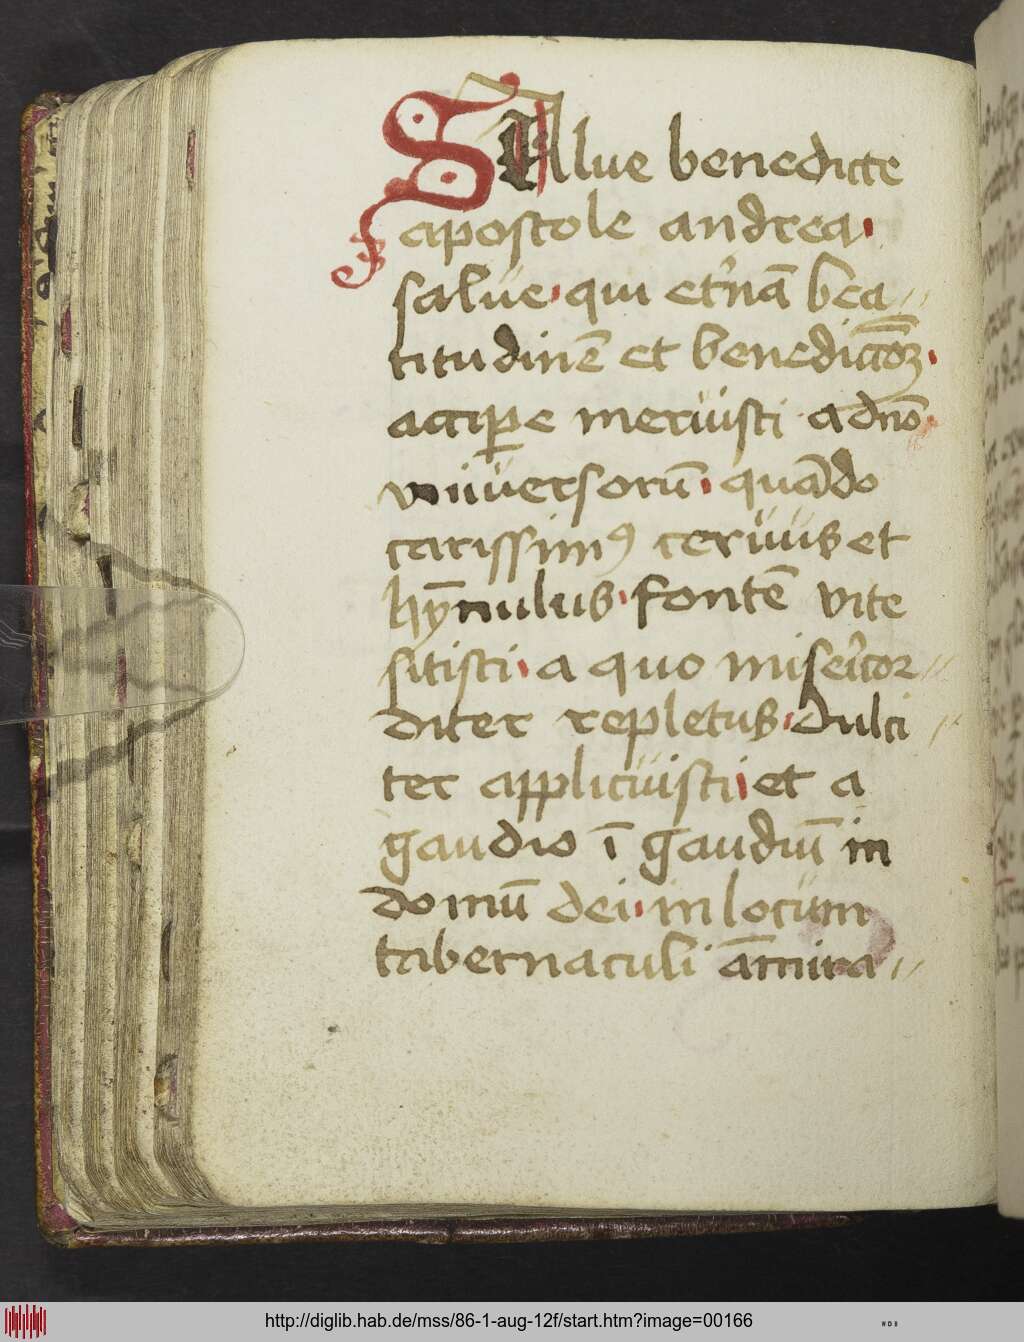 SAlue benedicte
apostole andrea·
salue· qui et'nā bea//
titudinē et benedictōꝫ·
accipe meruisti a dn̄o·
vniuersorū· quādo
carissimꝰ ceruus et
hȳnulus· fontē vite
sitisti· a quo miser̄cor//
diter repletus· dulci//
ter applicuisti· et a
gaudio ī gaudiū in
domū dei· in locum
tabernaculi āmira//
http://diglib.hab.de/mss/86-1-aug-12f/start.htm?image=00166